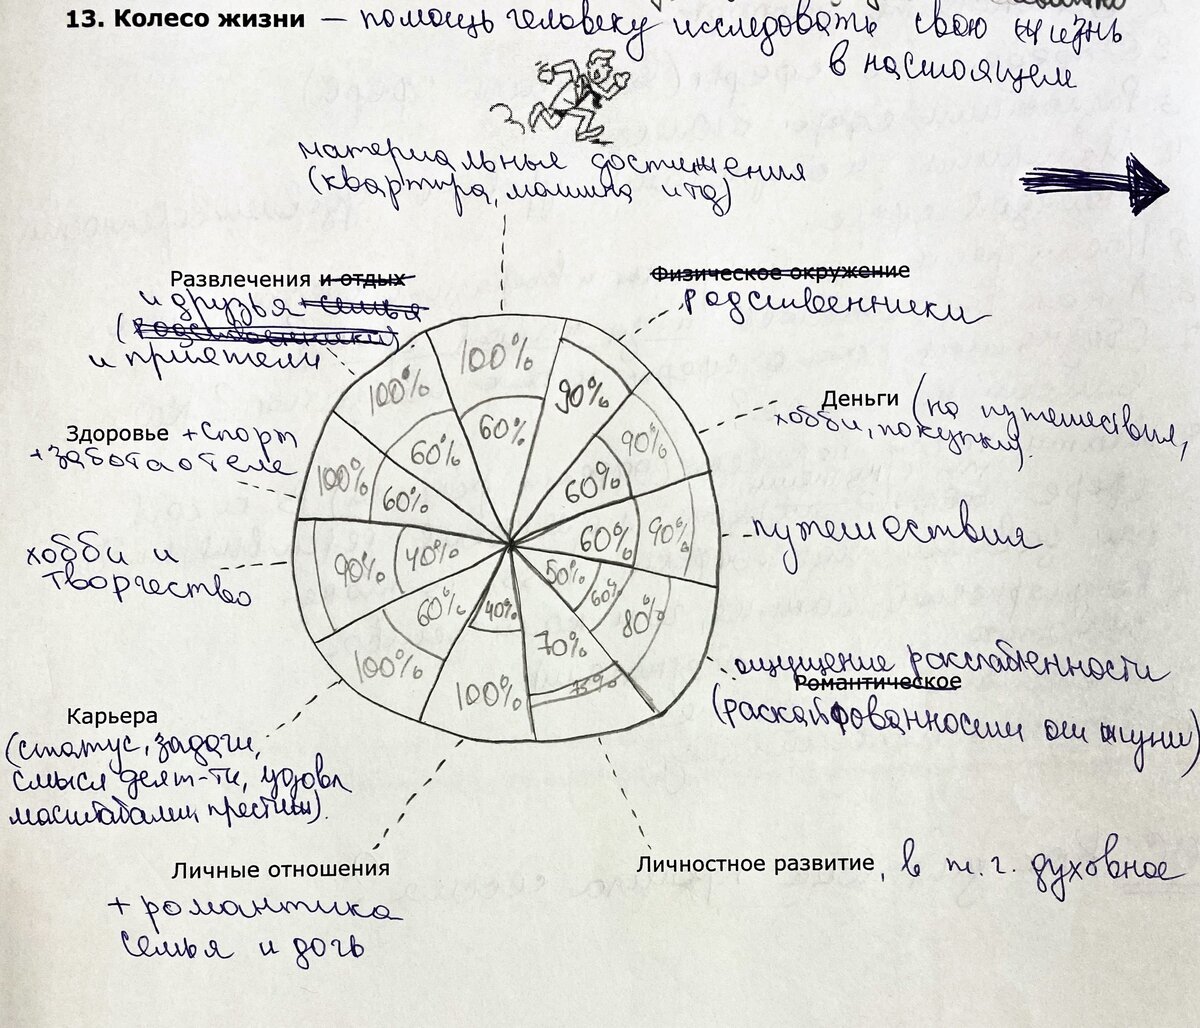 13. Колесо жизни – помощь человеку исследовать свою жизнь
в настоящем
материальные достижения
(квартира, машина итд)
Развлечения и отдых
и друзья + семья
(родственники)
и приятели
Физическое окружение
родственники
Деньги (на путешествия,
хобби, покупки).
Здоровье + спорт
+ забота о теле
путешествия
хобби и
творчество
100%
60%
90%
90%
60%
90%
60%
80%
60%
50%
70%
75%
100%
40%
100%
60%
90%
40%
100%
60%
100%
60%
ощущение расслабленности
Романтическое
(раскайфованности от жизни)
Карьера
(статус, задачи,
смысл деят-ти, удовл
масштабами, престиж).
Личные отношения
+ романтика
семья и дочь
Личностное развитие, в т. ч. духовное